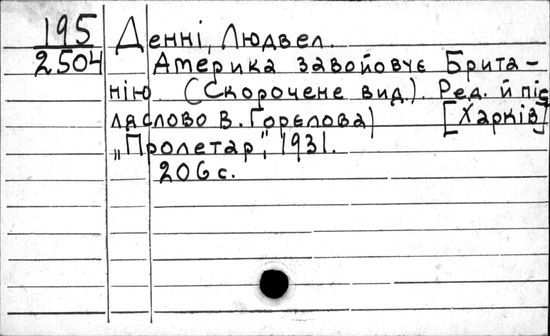 195 Денні, Людвел.
2504 Америка завойовує Брита-
нію (Скорочене вид.). Ред. й піс
ляслово В. Горєлова) [Харків]
„Пролетар", 1931.
206 с.